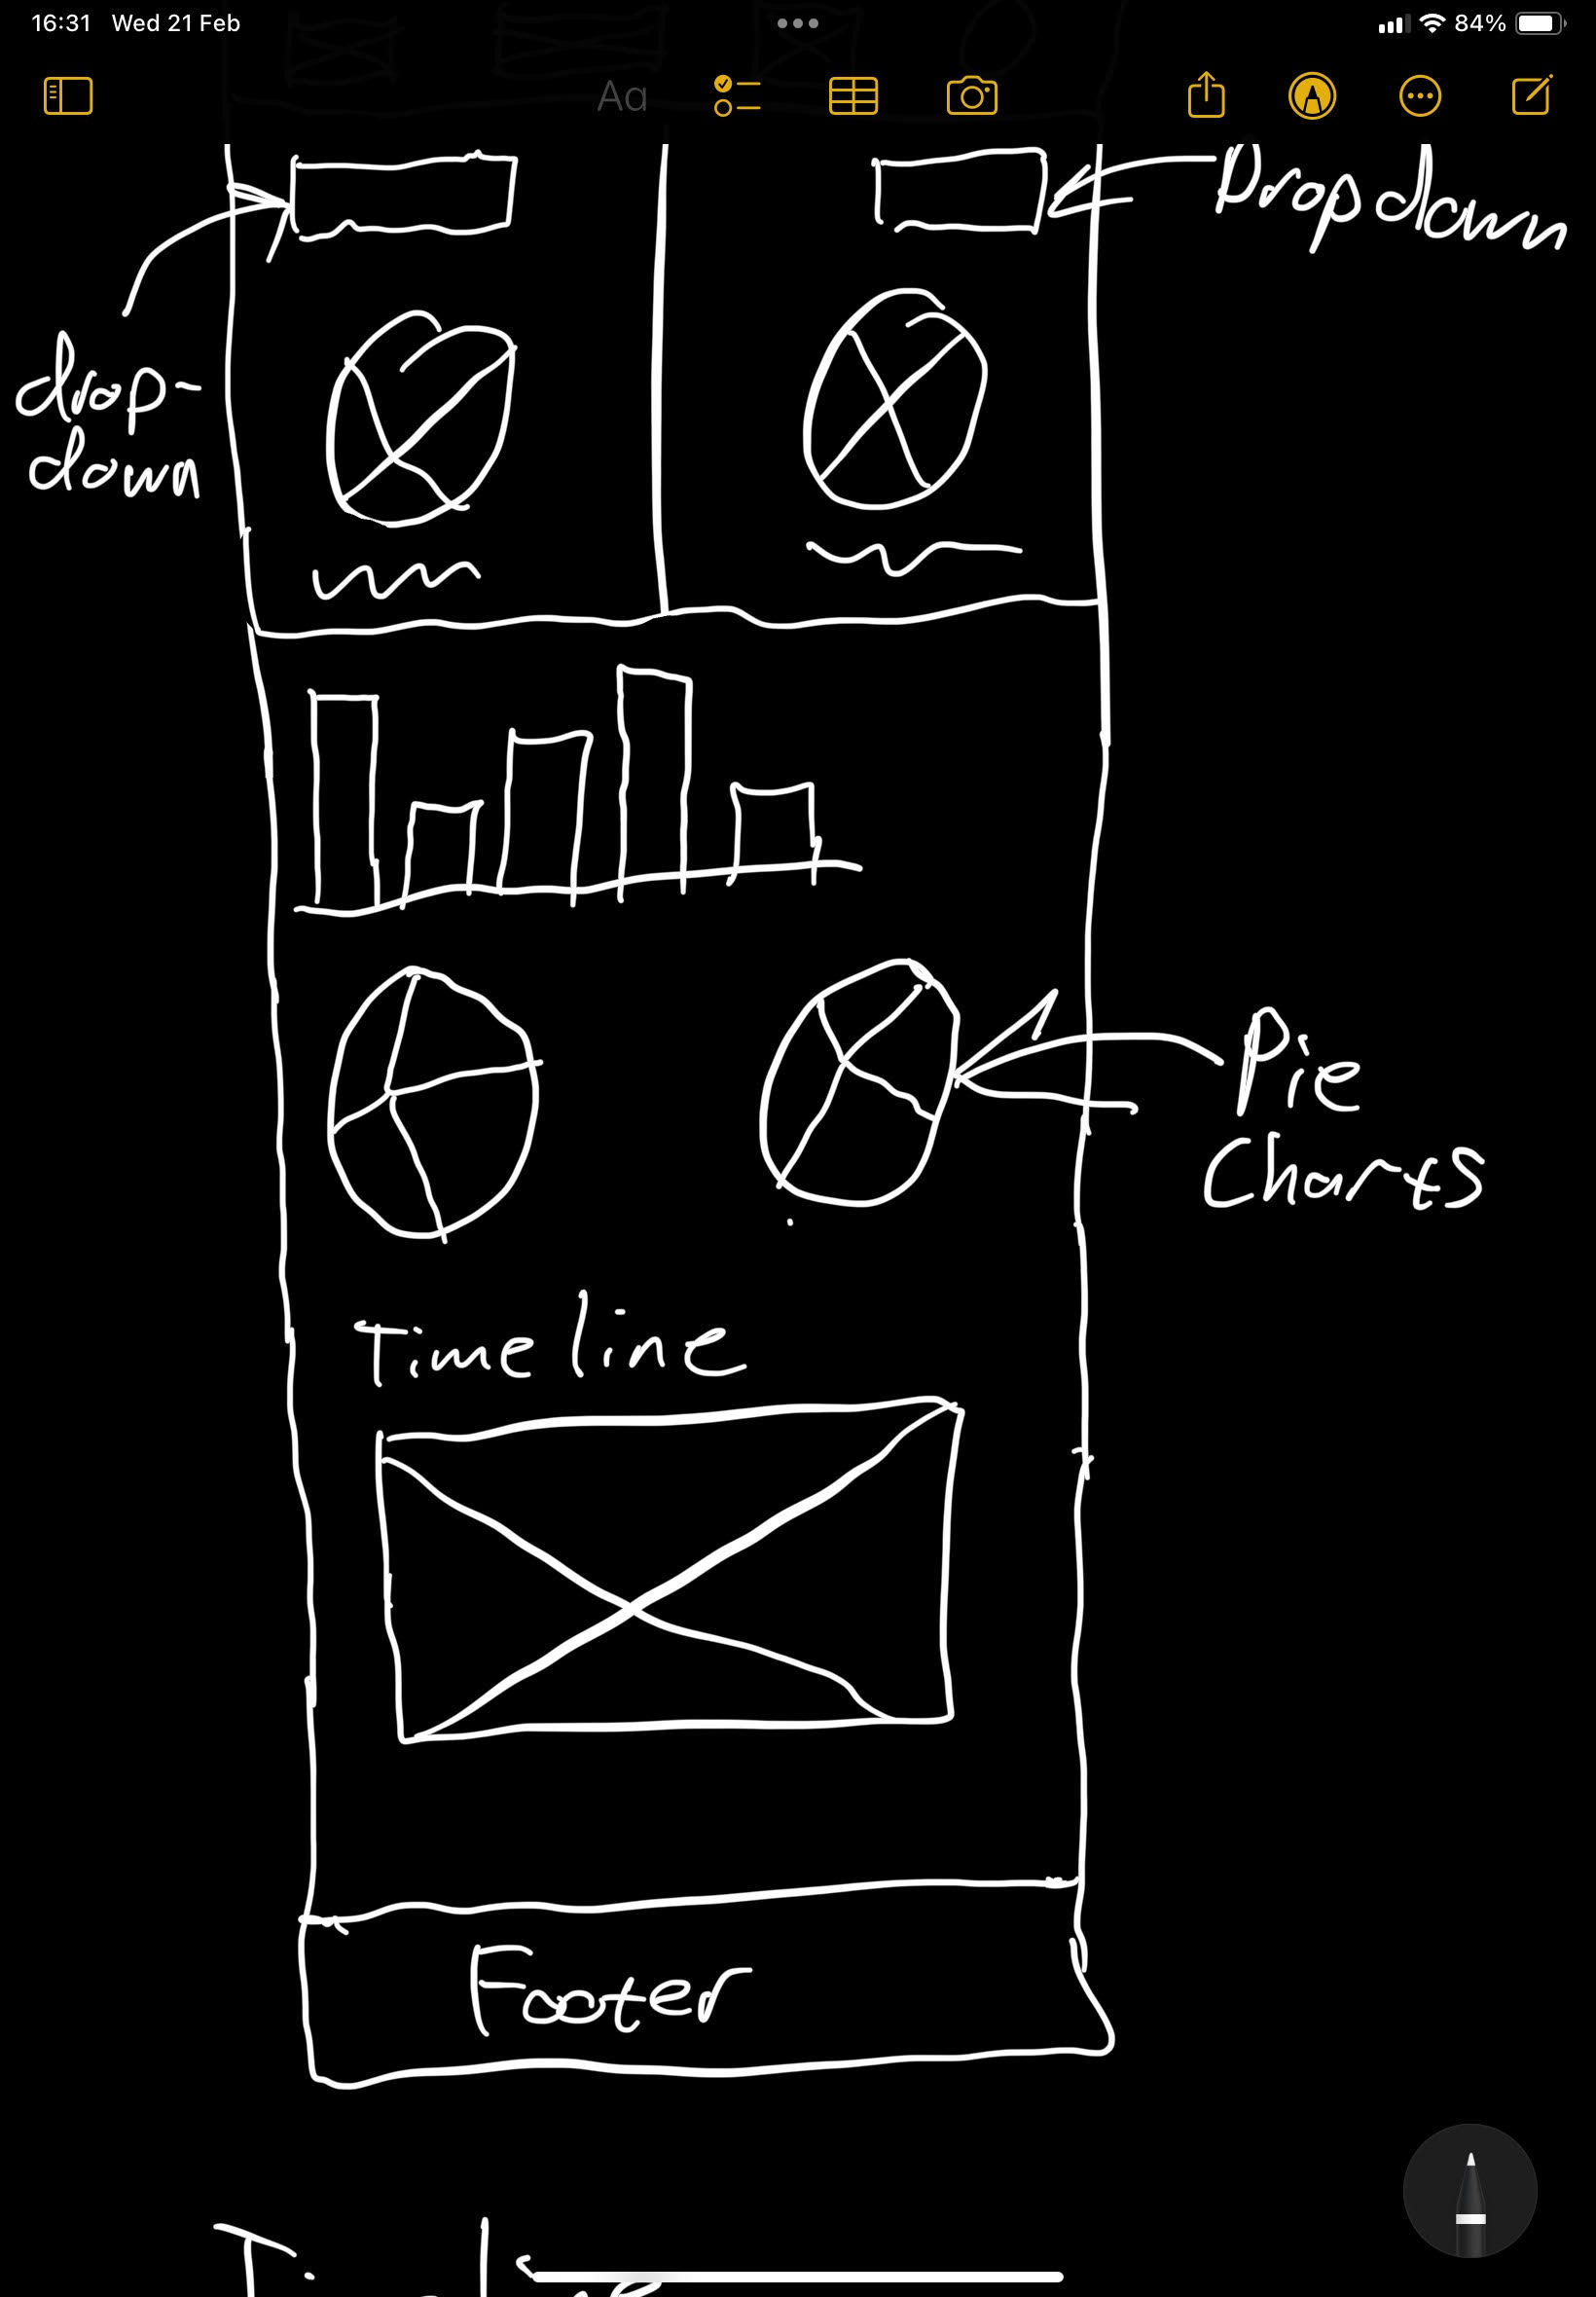 16:31 Wed 21 Feb
84%
Aa
Dropdown
drop-
down
Pie
Charts
Timeline
Footer